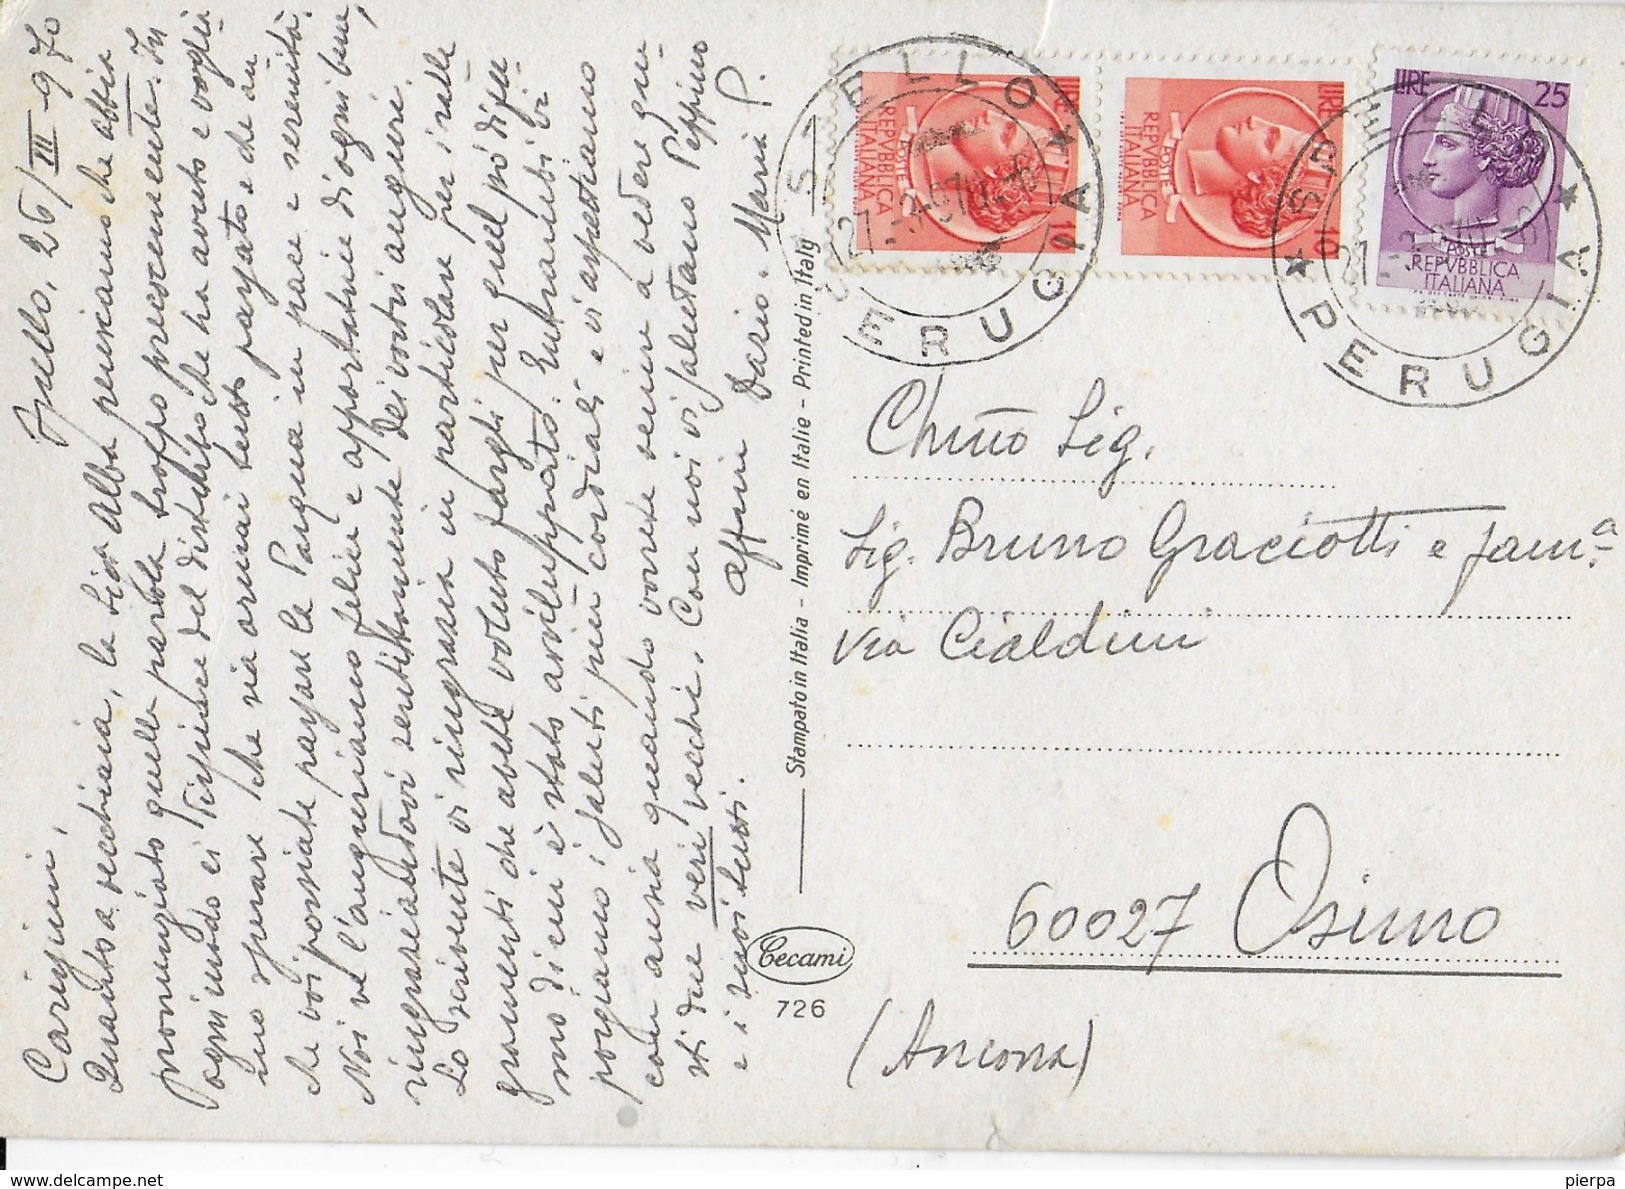 Spello, 26/III-970
Carissimi,
Quando a vecchiaia, la Sigra Alba pensiamo che abbia
pronunziato quella parola troppo precocemente. In
ogni modo ci dispiace del disturbo che ha avuto e voglia
mo sperare che sia ormai tutto passato e che an
che voi possiate passare la Pasqua in pace e serenità.
Noi ve l'auguriamo felice e apportatrice di ogni bene,
ringraziandovi sentitamente dei vostri auguri.
Lo scrivente vi ringrazia in particolare per i ralle
gramenti che avete voluto fargli per quel pò di fu
mo di cui è stato avviluppato. Entrambi vi
porgiamo i saluti più cordiali e vi aspettiamo
con ansia quando vorrete venire a vedere que
sti due veri vecchi. Con noi vi salutano Peppino
e i suoi tutti.
Affmi Dario - Maria P.
Stampato in Italia - Imprimé en Italie - Printed in Italy
Cecami
726
LIRE 10
POSTE
REPVBBLICA
ITALIANA
LIRE 10
POSTE
REPVBBLICA
ITALIANA
LIRE 25
POSTE
REPVBBLICA
ITALIANA
SPELLO
27-3-970
PERUGIA
SPELLO
27-3-970
PERUGIA
Chmo Sig.
Sig. Bruno Graciotti e fama
Via Cialdini
60027 Osimo
(Ancona)
delcampe.net
pierpa